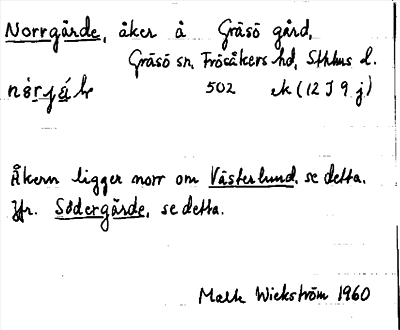 Norrgärde, åker å Gräsö gård,
Gräsö sn, Frösåkers hd, Sthlms l.
502 ek (12 I 9 j)
Åkern ligger norr om Västerlund, se detta.
Jfr. Södergärde, se detta.
Wickström 1960